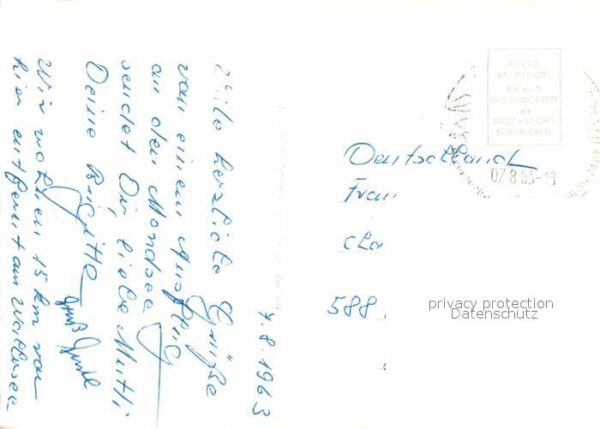 7.8.1963
Viele herzliche Grüße
von einem Ausflug
an den Mondsee
sendet Dir, liebe Mutti
Deine Brigitte
Gruß
Wir wohnen 15 km von
hier entfernt am Wallersee
PORTO
VERBILLIGT!
Bis zu 5
GRUSSWORTEN
als
DRUCKSACHE
FRANKIEREN
07.8.63-18
Deutschland
Frau
588
privacy protection
Datenschutz